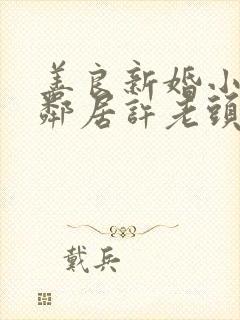 善良新婚小
鄰居許老頭
戴兵